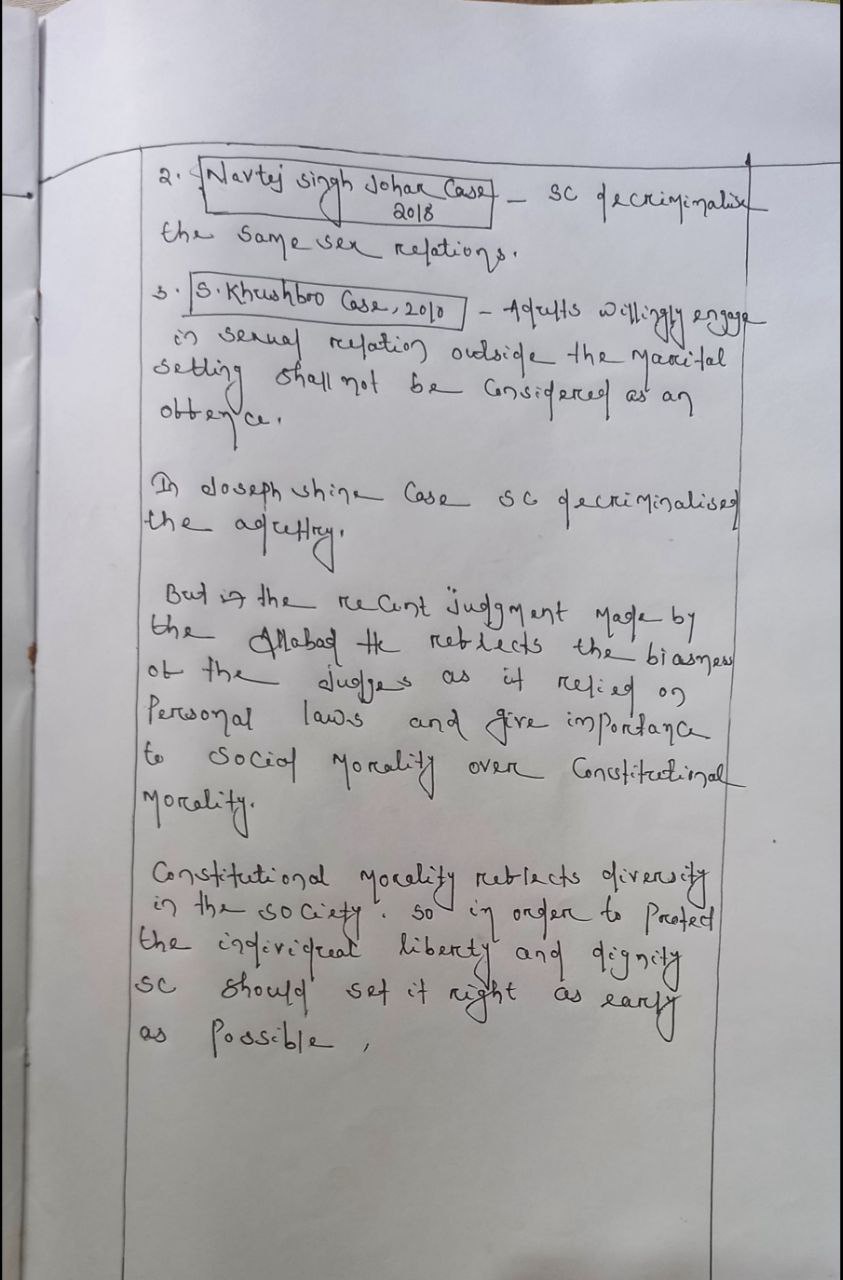 2. Navtej Singh Johar Case
2018 - SC decriminalise
the same sex relations.
3. S. Khushboo Case, 2010 - Adults willingly engage
in sexual relation outside the marital
setting shall not be considered as an
offence.
In Joseph Shine Case SC decriminalised
the adultry.
But in the recent judgment made by
the Allabad HC reflects the biasness
of the judges as it relied on
Personal laws and give importance
to social morality over Constitutional
morality.
Constitutional morality reflects diversity
in the society. So in order to Protect
the individual liberty and dignity
SC should set it right as early
as Possible,